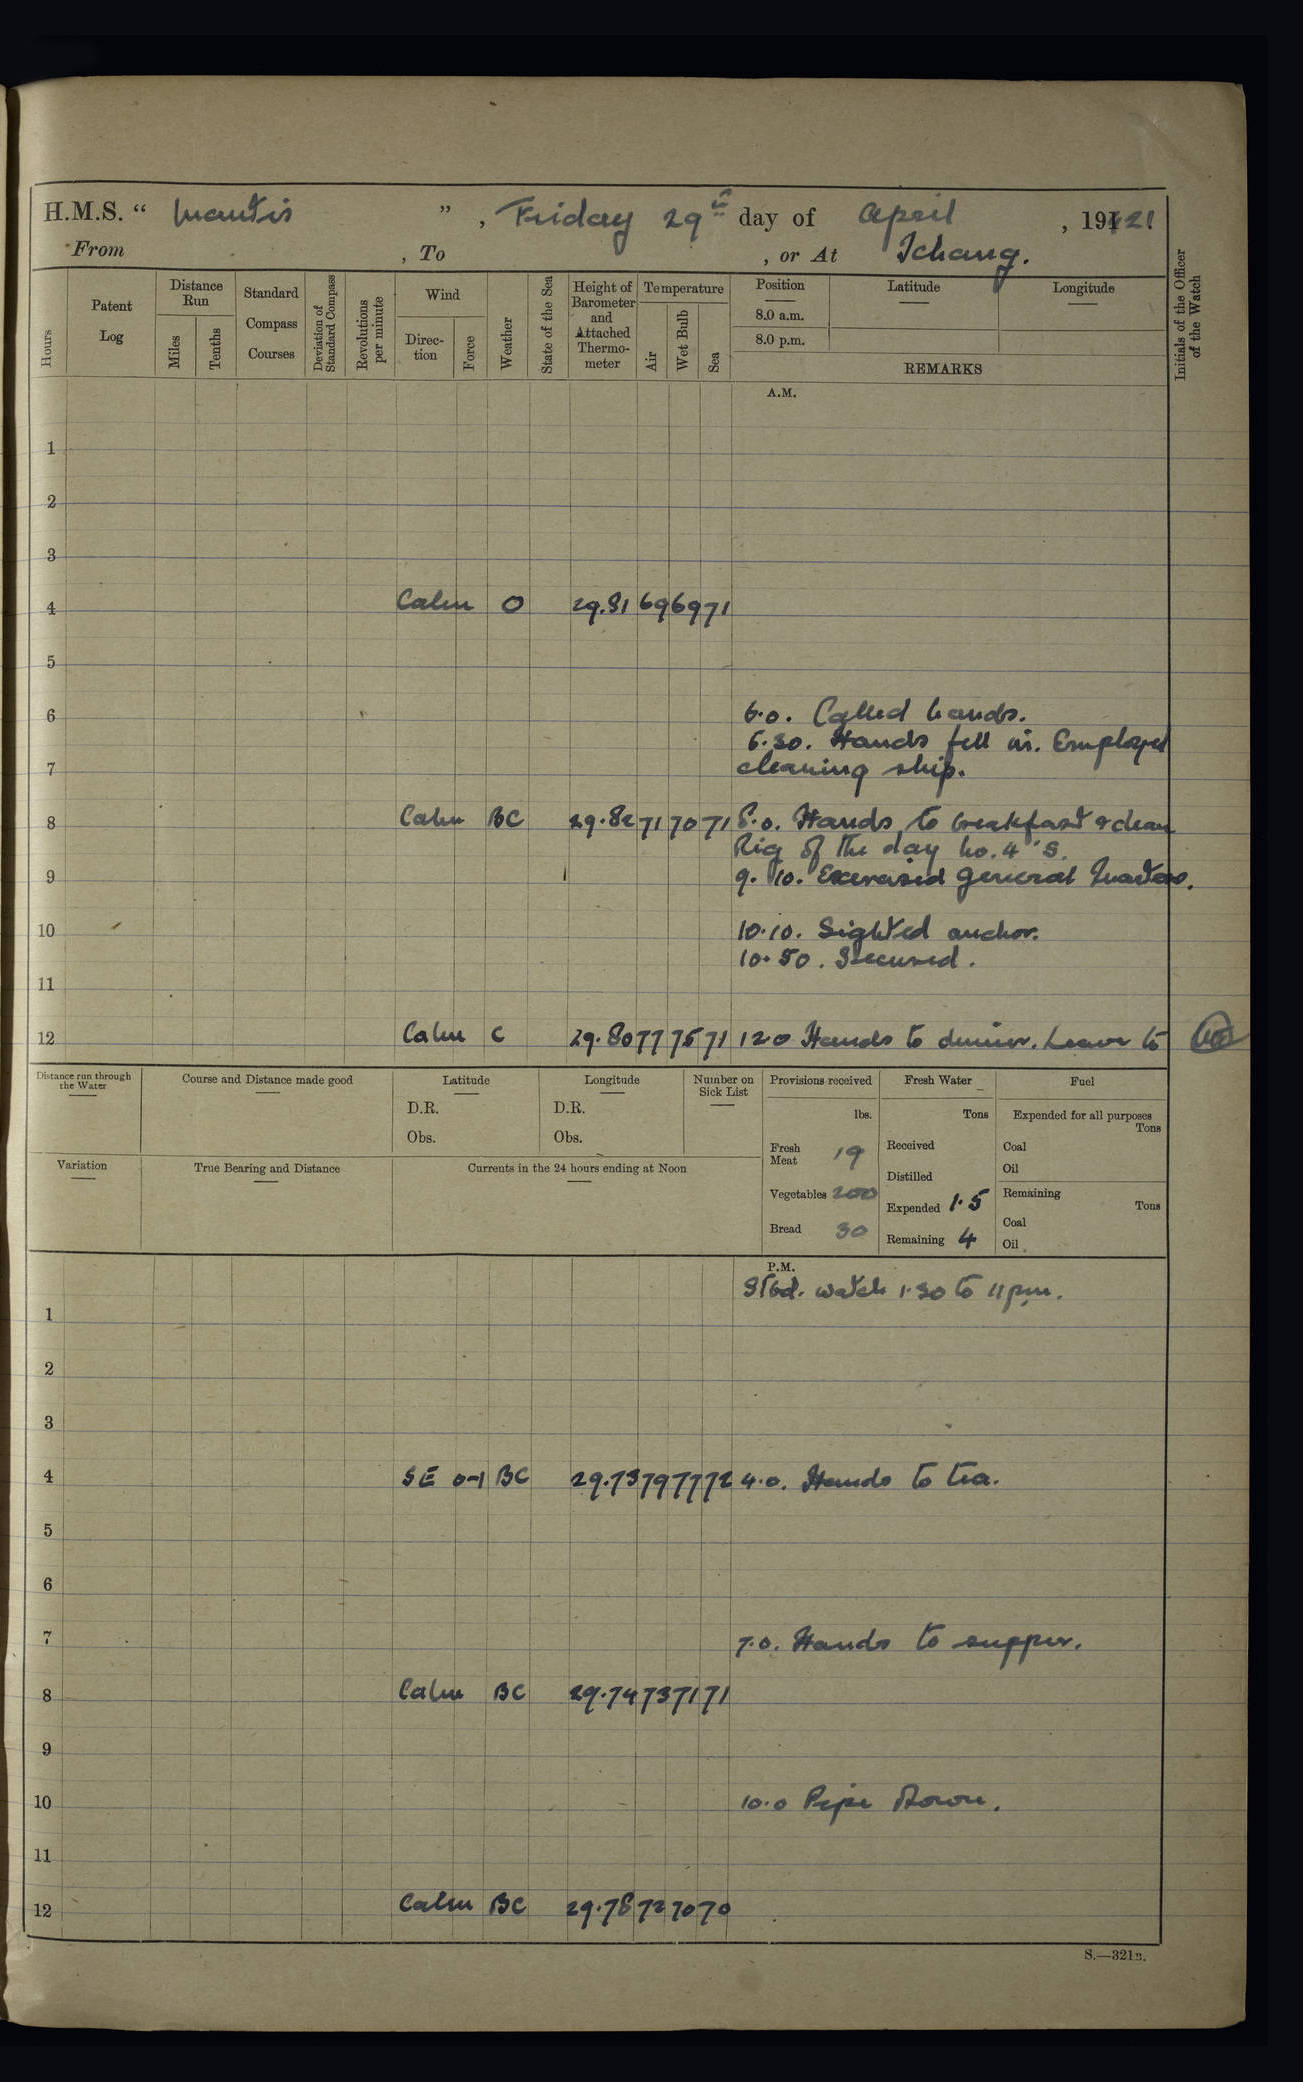 H.M.S. “ Mantis ” , Friday 29th day of April , 1921
From , To , or At Ichang.
Hours
Patent Log
Distance Run
Miles
Tenths
Standard Compass Courses
Deviation of Standard Compass
Revolutions per minute
Wind
Direc-tion
Force
Weather
State of the Sea
Height of Barometer and Attached Thermo-meter
Temperature
Air
Wet Bulb
Sea
Position
8.0 a.m.
8.0 p.m.
Latitude
Longitude
REMARKS
Initials of the Officer of the Watch
A.M.
1
2
3
4 Calm O 29.81 69 69 71
5
6 6.0. Called hands.
6.30. Hands fell in. Employed
7 cleaning ship.
8 Calm BC 29.82 71 70 71 8.0. Hands to breakfast & clean
Rig of the day No. 4's.
9 9.10. Exercised General Quarters.
10 10.10. Sighted anchor.
10.50. Secured.
11
12 Calm C 29.80 77 75 71 12.0 Hands to dinner. Leave to
Distance run through the Water
Course and Distance made good
Latitude
D.R.
Obs.
Longitude
D.R.
Obs.
Number on Sick List
Provisions received
lbs.
Fresh Meat 19
Vegetables 200
Bread 30
Fresh Water
Tons
Received
Distilled
Expended 1.5
Remaining 4
Fuel
Expended for all purposes
Tons
Coal
Oil
Remaining
Tons
Coal
Oil
Variation
True Bearing and Distance
Currents in the 24 hours ending at Noon
P.M.
Stbd. watch 1.30 to 11 pm.
1
2
3
4 SE 0-1 BC 29.73 79 77 72 4.0. Hands to tea.
5
6
7 7.0. Hands to supper.
8 Calm BC 29.74 73 71 71
9
10 10.0 Pipe Down.
11
12 Calm BC 29.78 72 70 70
S.—321B.